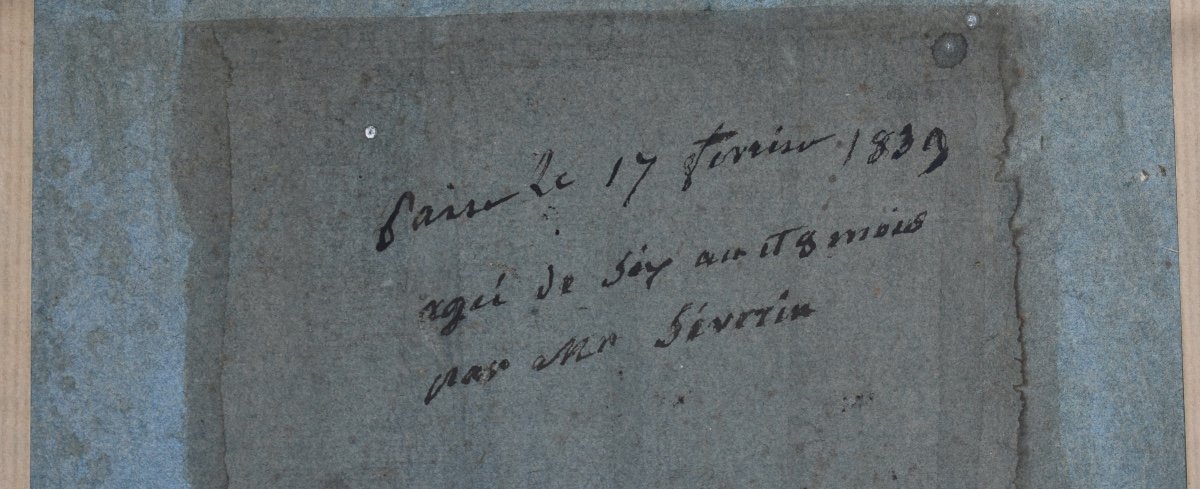 Paise le 17 fevrier 1839
agée de Six an et 8 mois
par Mr Séverin